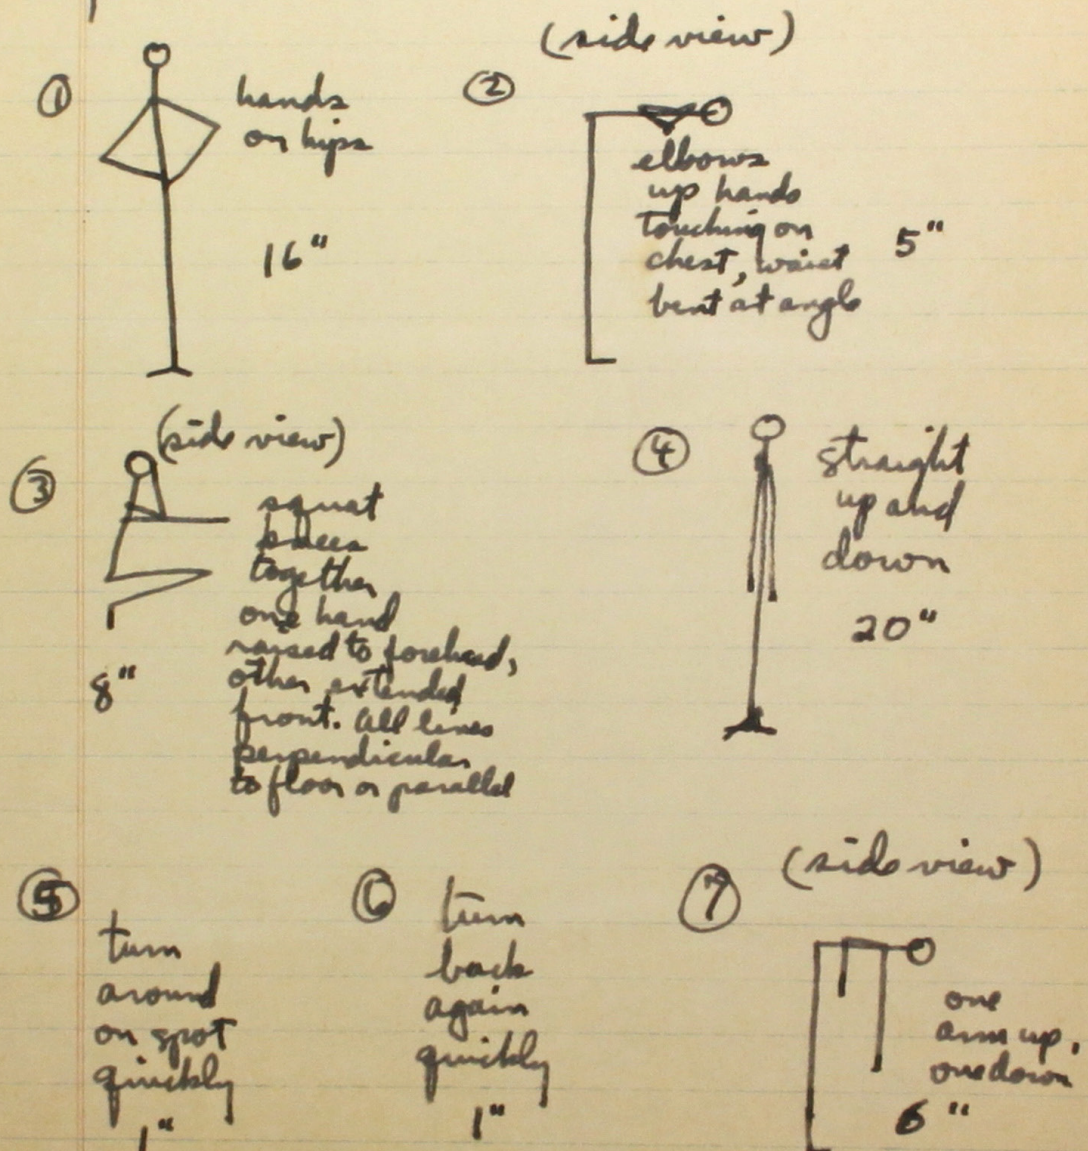 ①
hands
on hips
16"
(side view)
②
elbows
up hands
touching on
chest, waist
bent at angle
5"
(side view)
③
squat
knees
together
one hand
raised to forehead,
other extended
front. All lines
perpendicular
to floor or parallel
8"
④
straight
up and
down
20"
⑤
turn
around
on spot
quickly
1"
⑥
turn
back
again
quickly
1"
(side view)
⑦
one
arm up,
one down
6"